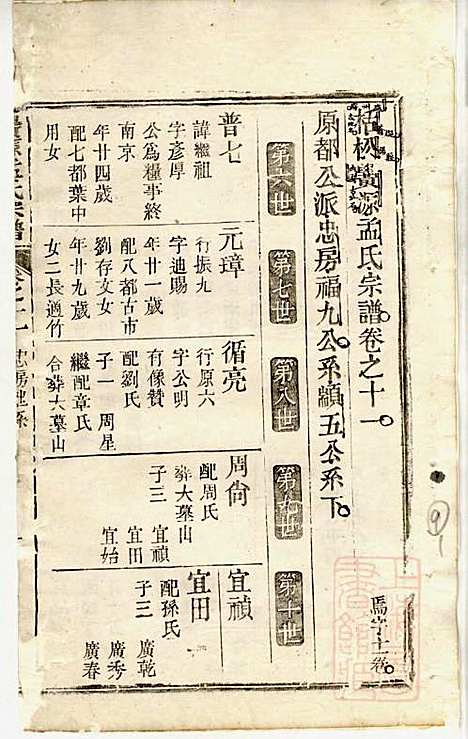 桔村黄源孟氏宗譜卷之十一
馬字十二卷
原都公派忠房福九公系顓五公系下
第六世
第七世
第八世
第九世
第十世
普七
諱繼祖
字彦厚
公爲糧事終
南京
年廿四歲
配七都葉中
用女
元璋
行振九
字迪賜
年廿一歲
配八都古市
劉存文女
年廿九歲
女二長適竹
循亮
行原六
字公明
有像贊
配劉氏
子一 周星
繼配章氏
合葬大墓山
周尙
配周氏
葬大墓山
子三 宜禎
宜田
宜始
宜禎
宜田
配孫氏
子三 廣乾
廣秀
廣春
卷之十一
忠房世系